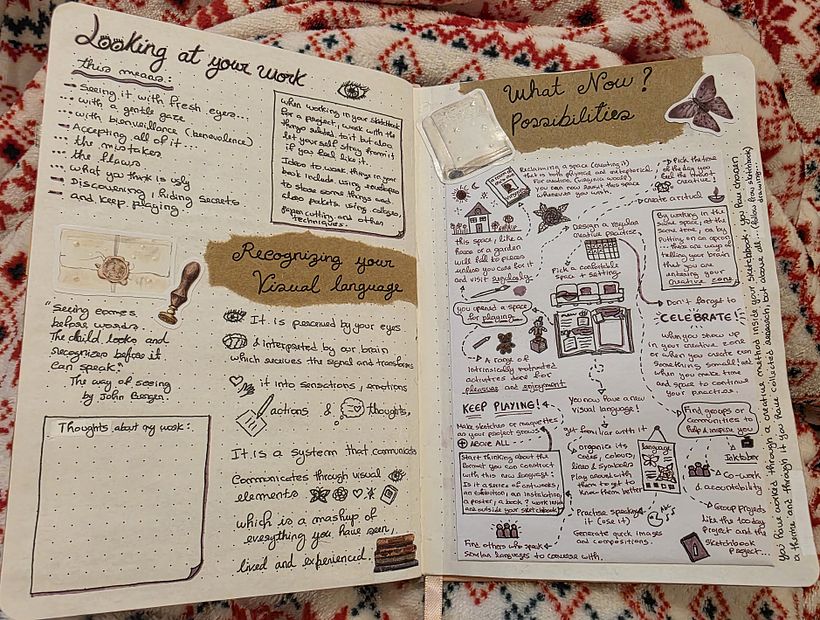 Looking at your work
this means:
– Seeing it with fresh eyes...
... with a gentle gaze
... with bienveillance (benevolence)
– Accepting all of it...
... the mistakes
... the flaws
... what you think is ugly
– Discovering, hiding secrets
– and keep playing.
When working in your sketchbook
for a project, work with the
things related to it but also
let yourself stray from it
if you feel like it.
Ideas to work things in your
book include using envelopes
to store some things and
also pockets using collages,
paper cutting, and other
techniques.
Recognizing your
Visual language
"Seeing comes
before words
The child looks and
recognizes before it
can speak."
The way of seeing
by John Berger.
It is perceived by your eyes
& interpreted by our brain
which receives the signal and transforms
it into sensations, emotions
actions & thoughts,
It is a system that communicates
Communicates through visual
elements
which is a mashup of
everything you have seen,
lived and experienced.
Thoughts about my work:
What Now?
Possibilities
Reclaiming a space (creating it)
this is both physical and metaphorical
for creative guidance would
you can now revisit this space
whenever you wish.
this space, like a
house or a garden
will fall to pieces
unless you care for it
and visit regularly.
you opened a space
for playing
A range of
intrinsically motivated
activities done for
pleasure and enjoyment
KEEP PLAYING!
Make sketches or maquettes
as your project grows.
ABOVE ALL
Start thinking about the
format you can construct
with this new language!
Is it a series of artworks,
an exhibition, an installation,
a poster, a book? work in
and outside your sketchbook
Find others who speak
similar languages to converse with.
Design a regular
creative practice.
Pick a comfortable
space & setting
You now have a new
visual language!
get familiar with it
organize its
codes, colours,
lines & symbols
Play around with
them to get to
know them better
language
Practise speaking
it (use it)
Generate quick images
and compositions.
Pick the time
of the day you
feel the most
creative!
create a ritual
By working in the
same space, at the
same time, or by
putting on an apron
these are ways of
telling your brain
that you are
entering your
creative zone
Don't forget to
CELEBRATE!
when you show up
in your creative zone
or when you create even
something small! at
when you make time
and space to continue
your practise.
Find groups or
communities to
help & inspire you
Inktober
Co-work
& accountability
Group projects
like the 100 day
project and the
Sketchbook
project...
You have worked through a creative method inside your sketchbook you have chosen
a theme and through it you have collected research, but above all...
drawing...